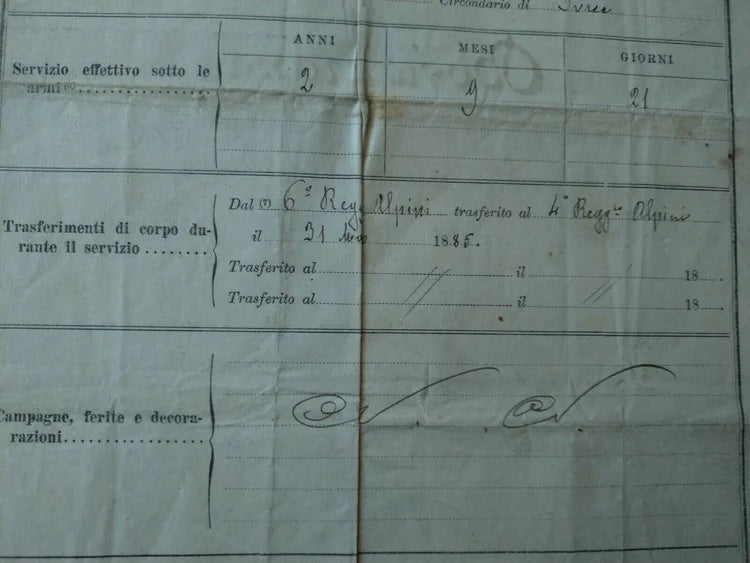 Circondario di Ivrea
ANNI MESI GIORNI
Servizio effettivo sotto le
armi (6) 2 9 21
Dal (7) 6° Regg Alpini trasferito al 4° Regg.to Alpini
Trasferimenti di corpo du-
rante il servizio
il 31 1885.
Trasferito al // il // 18 .
Trasferito al il 18 .
Campagne, ferite e decora-
razioni